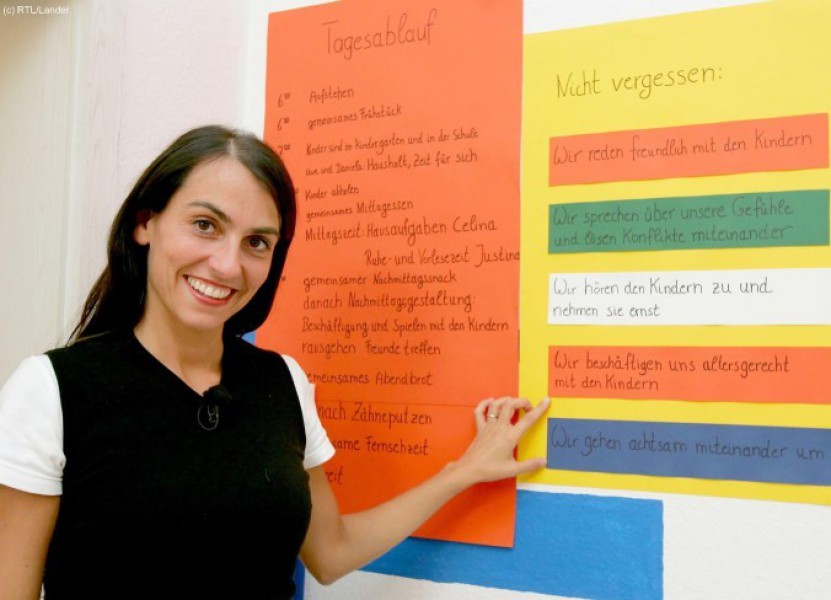 (c) RTL/Lander
Tagesablauf
6⁰⁰ Aufstehen
6³⁰ gemeinsames Frühstück
7⁰⁰ Kinder sind im Kindergarten und in der Schule
Uwe und Daniela: Haushalt, Zeit für sich
Kinder abholen
gemeinsames Mittagessen
Mittagszeit: Hausaufgaben Celina
Ruhe- und Vorlesezeit Justine
gemeinsamer Nachmittagssnack
danach Nachmittagsgestaltung:
Beschäftigung und Spielen mit den Kindern
rausgehen Freunde treffen
emeinsames Abendbrot
nach Zähneputzen
same Fernsehzeit
eit
Nicht vergessen:
Wir reden freundlich mit den Kindern
Wir sprechen über unsere Gefühle
und lösen Konflikte miteinander
Wir hören den Kindern zu und
nehmen sie ernst
Wir beschäftigen uns altersgerecht
mit den Kindern
Wir gehen achtsam miteinander um